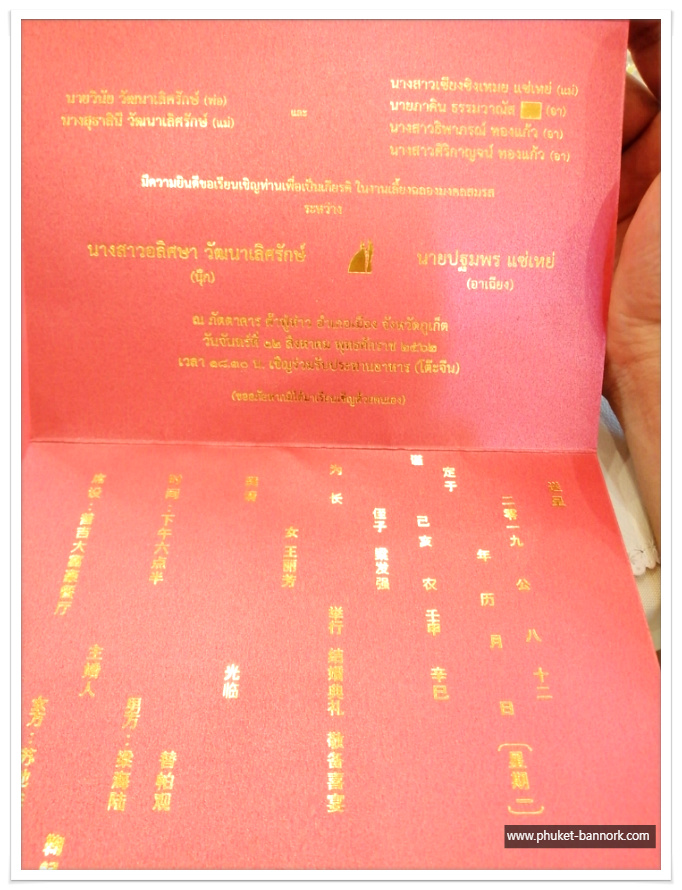 นายวินัย วัฒนาเลิศรักษ์ (พ่อ)
นางยุธาสินี วัฒนาเลิศรักษ์ (แม่)
และ
นางสาวเซียงซิงเหมย แซ่เหย่ (แม่)
นายภาคิน ธรรมวาณัส (อา)
นางสาวธิพาภรณ์ ทองแก้ว (อา)
นางสาวศิริกาญจน์ ทองแก้ว (อา)
มีความยินดีขอเรียนเชิญท่านเพื่อเป็นเกียรติ ในงานเลี้ยงฉลองมงคลสมรส
ระหว่าง
นางสาวอลิศษา วัฒนาเลิศรักษ์
(นุ๊ก)
นายปฐมพร แซ่เหย่
(อาเฉียง)
ณ ภัตตาคาร อำเภอเมือง จังหวัดภูเก็ต
วันจันทร์ที่ ๑๒ สิงหาคม พุทธศักราช ๒๕๖๒
เวลา ๑๘.๓๐ น. เชิญร่วมรับประทานอาหาร (โต๊ะจีน)
(ขออภัยหากมิได้มาเรียนเชิญด้วยตนเอง)
谨定于
二零一九 年 公历 八月 十二 日 (星期一)
己亥 农 壬申 辛巳
为 长
侄子 发强
女 王丽芳
举行 結婚典礼 敬备喜宴
光临
时间：下午六点半
席设：大富豪餐厅
主婚人
男方：梁海陆
www.phuket-bannork.com